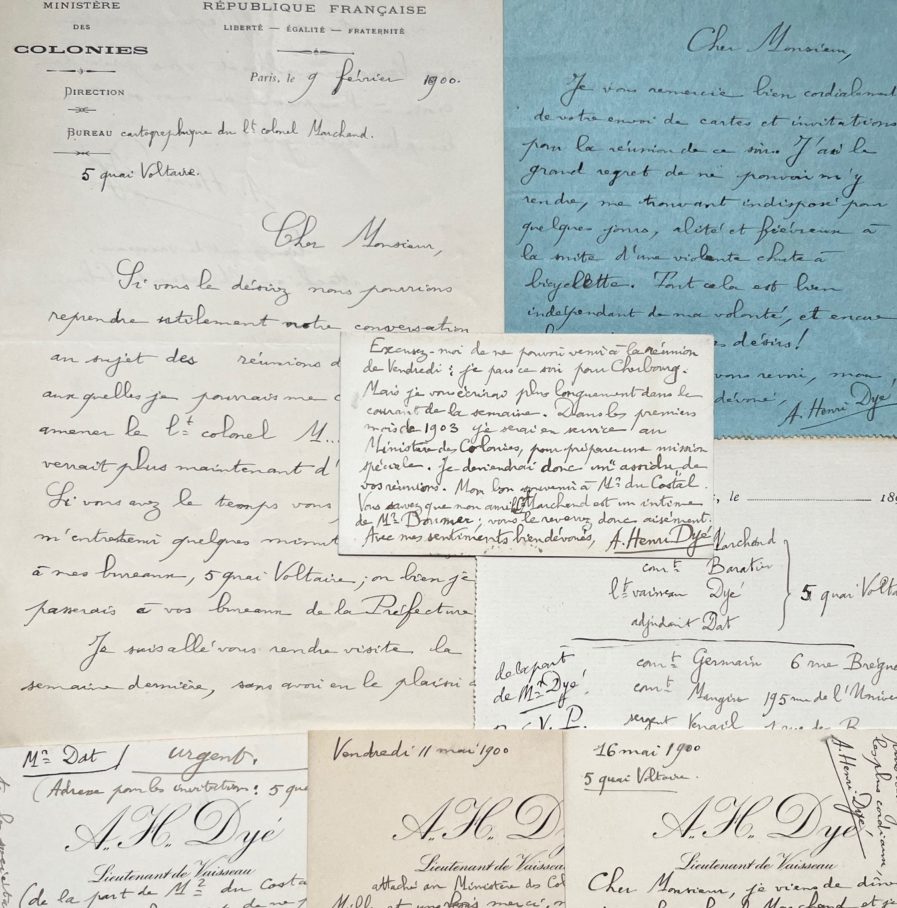 MINISTÈRE
DES
COLONIES
DIRECTION
BUREAU cartographique du lt colonel Marchand.
5 quai Voltaire.
RÉPUBLIQUE FRANÇAISE
LIBERTÉ — ÉGALITÉ — FRATERNITÉ
Paris, le 9 février 1900.
Cher Monsieur,
Si vous le désirez nous pourrions
reprendre utilement notre conversation
au sujet des réunions d
auxquelles je pourrais me
amener le lt colonel M...
verrait plus maintenant d'
Si vous avez le temps vous
m'entretenir quelques minut
à mes bureaux, 5 quai Voltaire, ou bien je
passerais à vos bureaux de la Préfecture
Je suis allé vous rendre visite la
semaine dernière, sans avoir eu le plaisir
Cher Monsieur,
Je vous remercie bien cordialement
de votre envoi de cartes et invitations
pour la réunion de ce soir. J'ai le
grand regret de ne pouvoir m'y
rendre, me trouvant indisposé pour
quelques jours, alité et fiévreux à
la suite d'une violente chute à
bicyclette. Tout cela est bien
indépendant de ma volonté, et encore
es désirs!
vous revoir, mon
dévoué,
A. Henri Dyé
Excusez-moi de ne pouvoir venir à la réunion
de Vendredi : je pars ce soir pour Cherbourg.
Mais je vous écrirai plus longuement dans le
courant de la semaine. Dans les premiers
mois de 1903 je serai en service au
Ministère des Colonies, pour préparer une mission
spéciale. Je deviendrai donc un "assidu" de
vos réunions. Mon bon souvenir à Mr du Costal.
Vous savez que mon ami Marchand est un intime
de Mr Doumer ; vous le reverrez donc aisément.
Avec mes sentiments bien dévoués, A. Henri Dyé
, le 189
Marchand
comt Baratier
lt vaisseau Dyé
adjudant Dat
5 quai Volta
de la part
de Mr Dyé
comt Germain 6 rue Brégue
comt Mangin 195 rue de l'Univer
sergent Venail
V. P.
Mr Dat / urgent.
(Adresse pour les invitations : 5 qua
A. H. Dyé
Lieutenant de Vaisseau
(de la part de Mr du Costa
Vendredi 11 mai 1900
A. H. D
Lieutenant de Vaissea
attaché au Ministère des Col
Mille et une fois merci, m
16 mai 1900
5 quai Voltaire.
A. H. Dyé
Lieutenant de Vaisseau
Cher Monsieur, je viens de dîner
Marchand et je
les plus cordiaux,
A. Henri Dyé